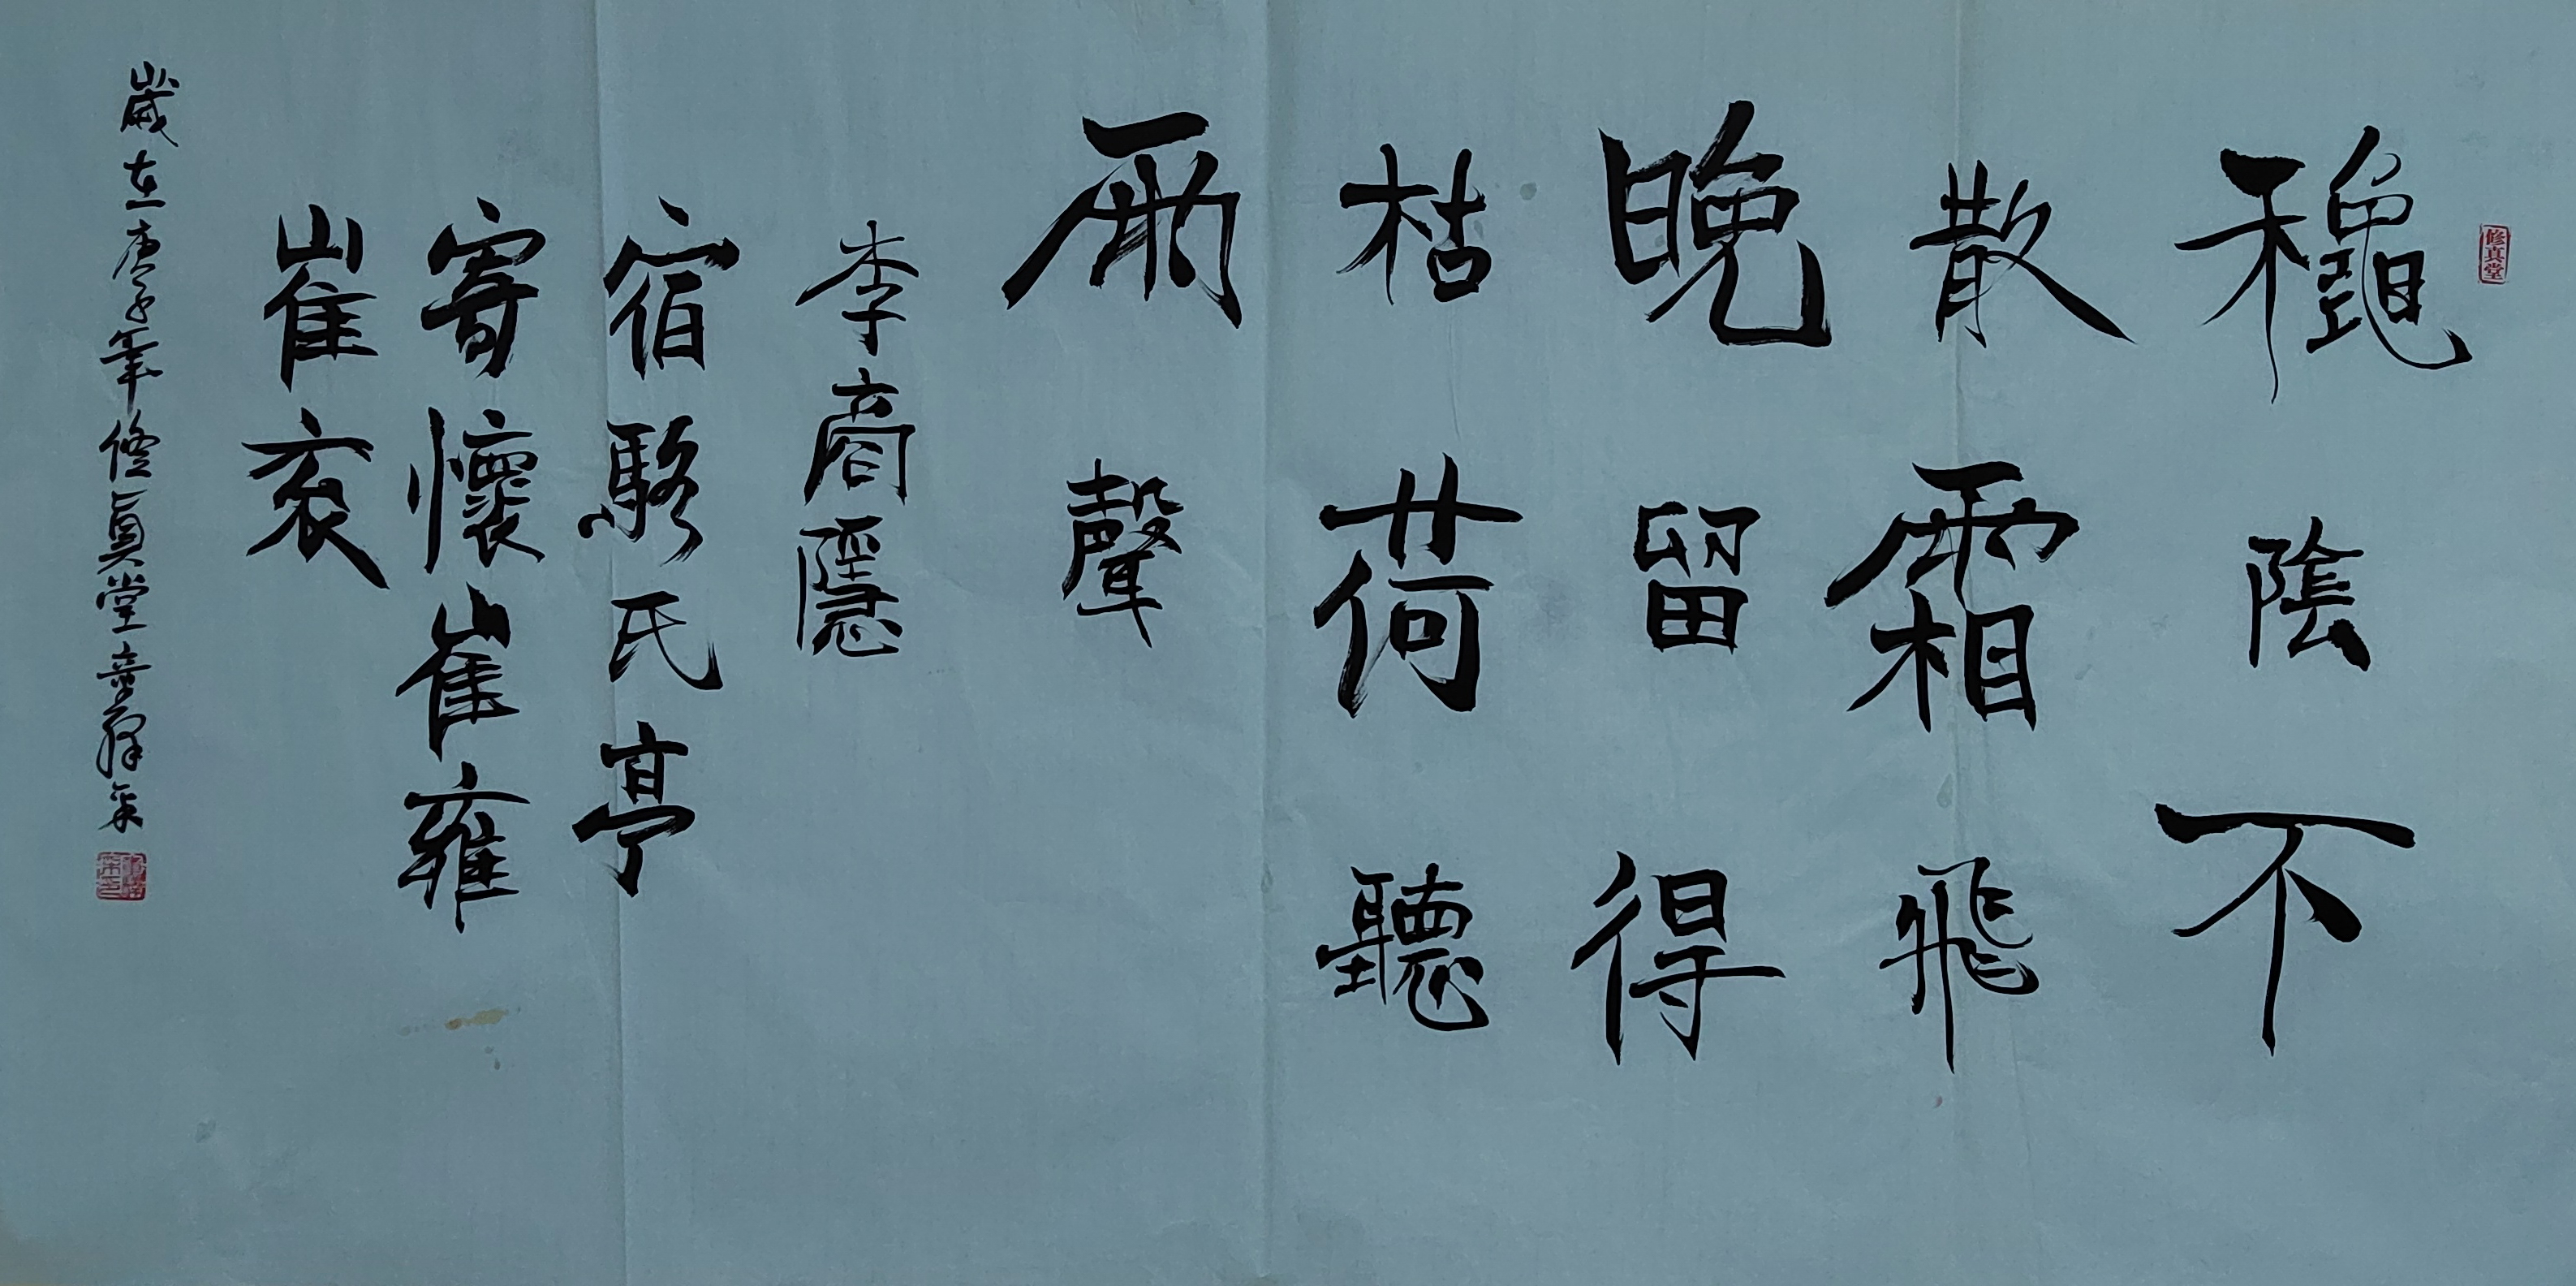 修真堂
穐陰不
散霜飛
晚留得
枯荷聽
雨聲
李商隱
宿駱氏亭
寄懷崔雍
崔衮
歲在庚子年修真堂